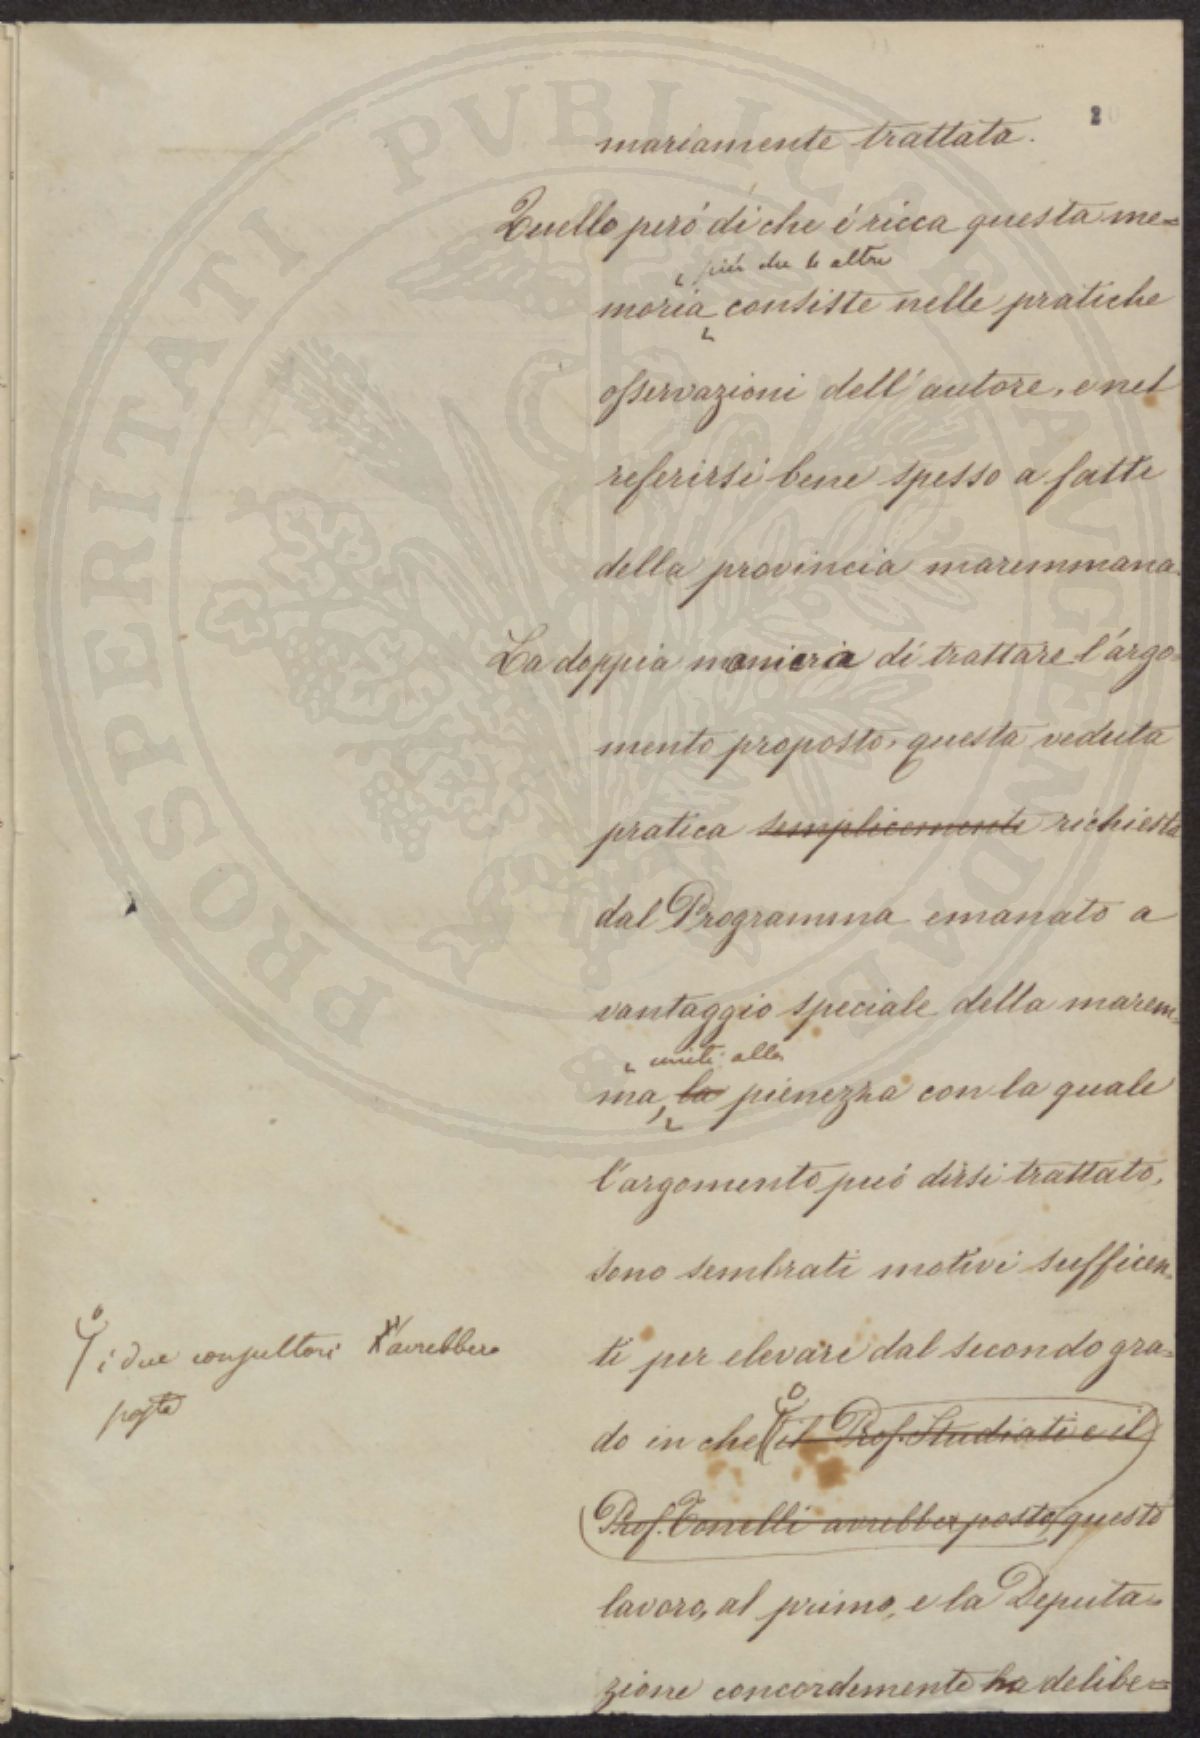 20
mariamente trattata.
Quello peró di che é ricca questa me=
più che le altre
moria consiste nelle pratiche
osservazioni dell'autore, e nel
referirsi bene spesso a fatti
della provincia maremmana.
La doppia maniera di trattare l'argo=
mento proposto, questa veduta
pratica semplicemente richiesta
dal Programma emanato a
vantaggio speciale della marem=
unite alla
ma, la pienezza con la quale
l'argomento può dirsi trattato,
sono sembrati motivi sufficen=
ti per elevare dal secondo gra=
do in che il Prof. Studiati e il
Prof. Tonelli avrebber posto questo
lavoro, al primo, e la Deputa=
zione concordemente ha delibe=
i due consultori avrebbero
posto
PROSPERITATI PVBLICAE AVGENDAE